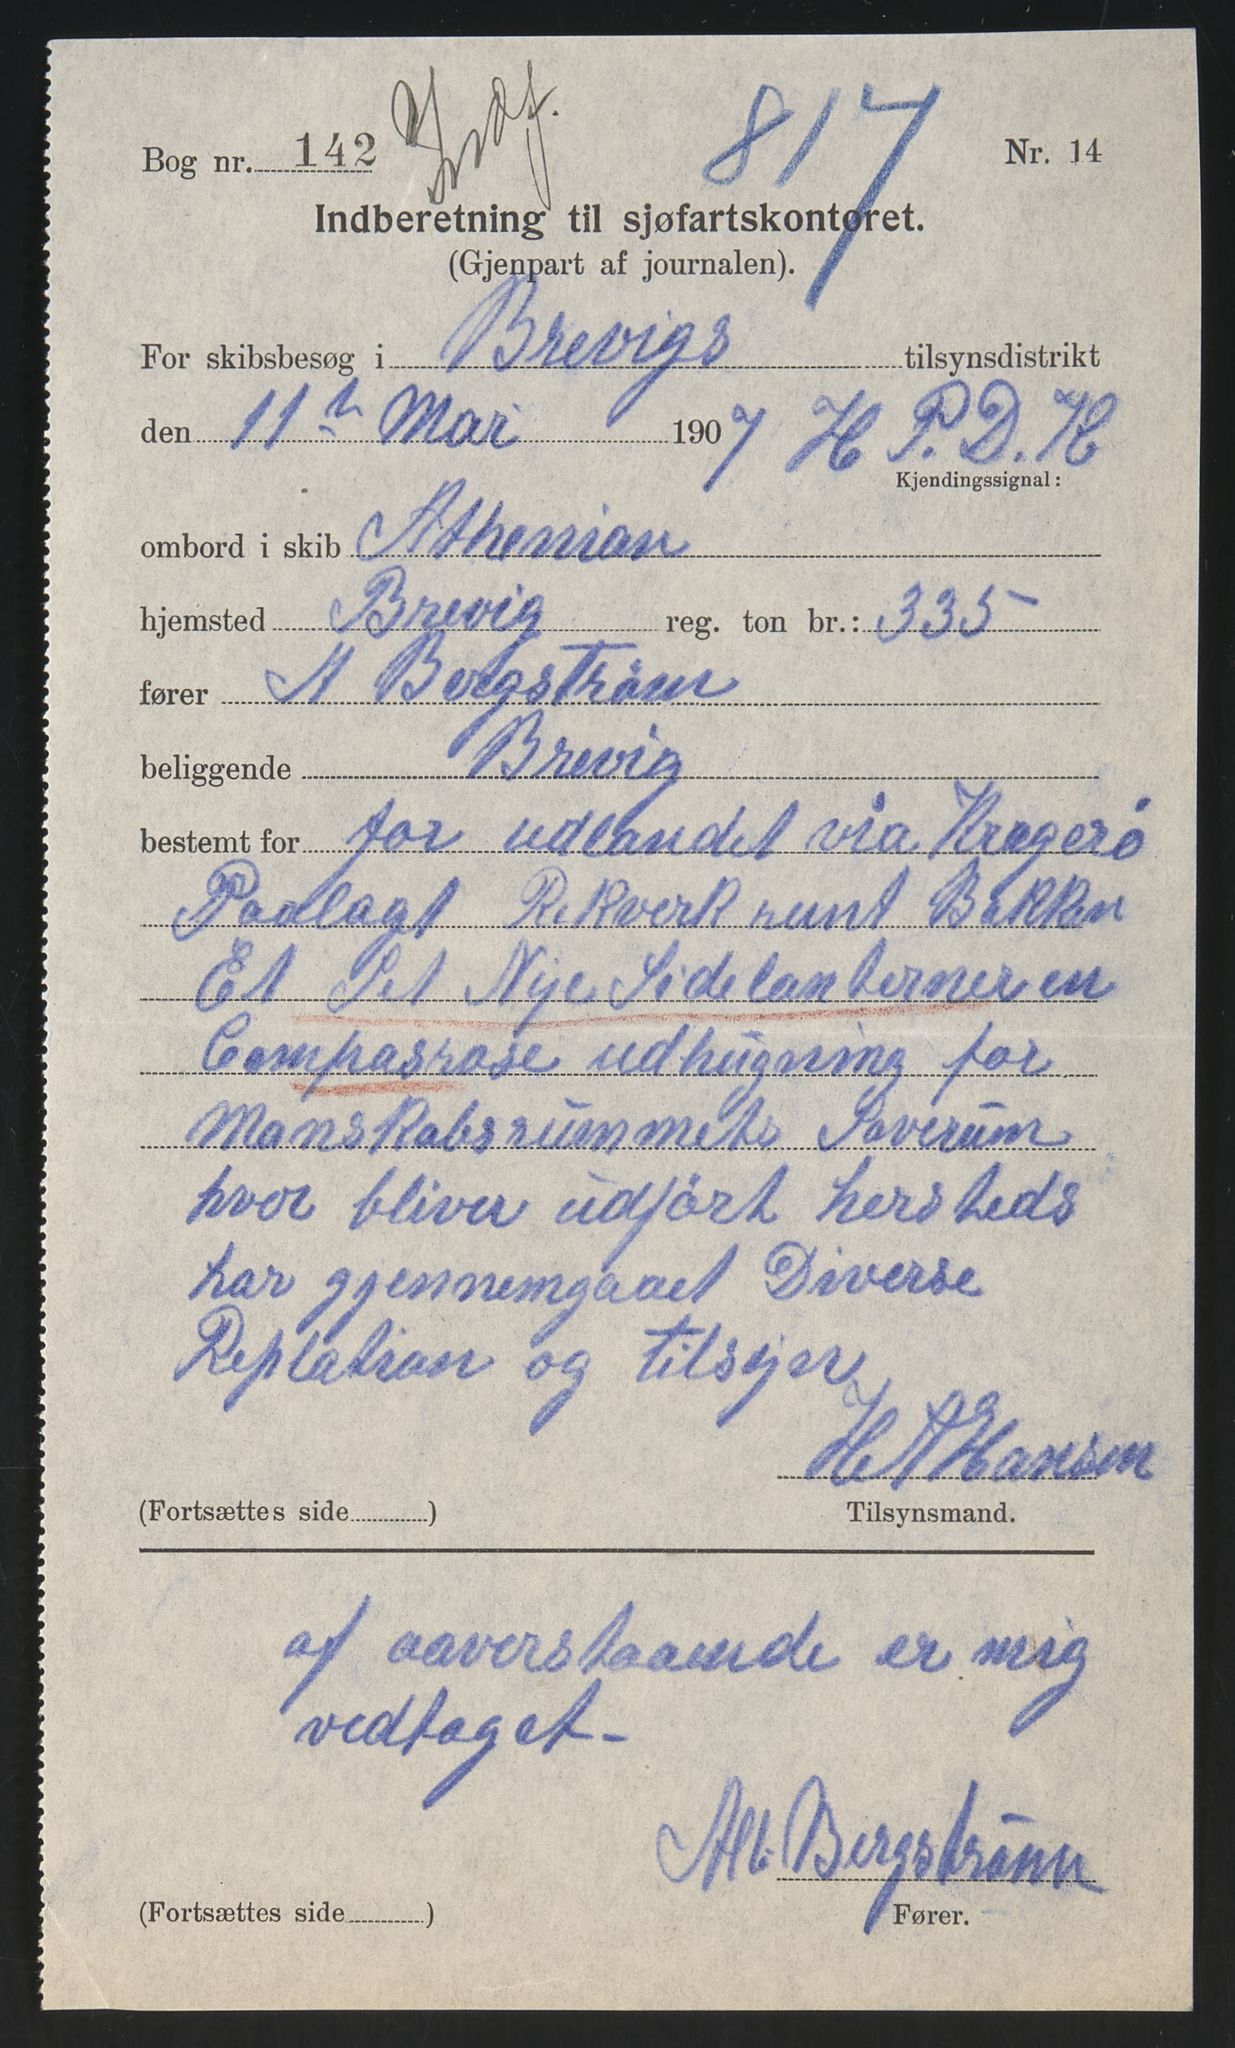 817
Bog nr. 142 Nr. 14
Indberetning til sjøfartskontoret.
(Gjenpart af journalen).
For skibsbesøg i Brevigs tilsynsdistrikt
den 11th Mai 1907 H P. D. H
Kjendingssignal:
ombord i skib Athenian
hjemsted Brevig reg. ton br.: 335
fører A Bergström
beliggende Brevig
bestemt for for udlandet via Kragerö
Paalagt Rekverk runt Bakken
Et Set Nye Sidelanterner en
Compasrose udhugning for
Manskabsrummets Soverum
hvor bliver udfört hersteds
har gjennemgaaet Diverse
Replation og tilsyn
H A Hansen
(Fortsættes side ) Tilsynsmand.
af aaverstaaende er mig
vedtaget-
Alb. Bergström
(Fortsættes side ) Fører.